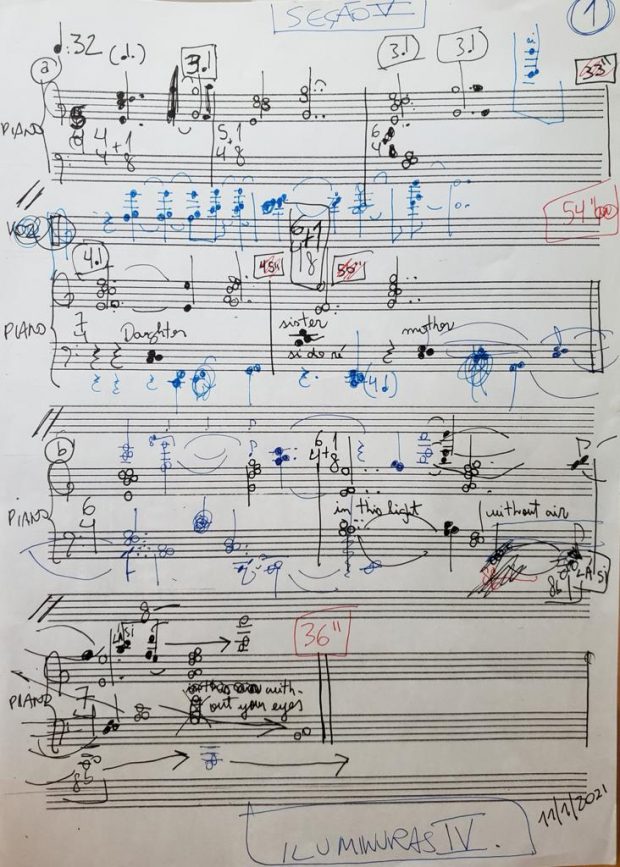 SEÇÃO V
1
: 32 (♩.)
a
3.♩ 3.♩ 3.♩
33"
PIANO
4+1
4 8
5+1
4 8
6
4
VOZ
54"
4.♩
45" 55"
6+1
4 8
PIANO
7
4
Daughter sister mother
si do ré
(4.♩)
b
6+1
4 8
PIANO
6
4
in this light without air
LA SI
8b
8
LA SI
36"
PIANO
7
with-
out your eyes
8b
11/1/2021
ILUMINURAS IV.